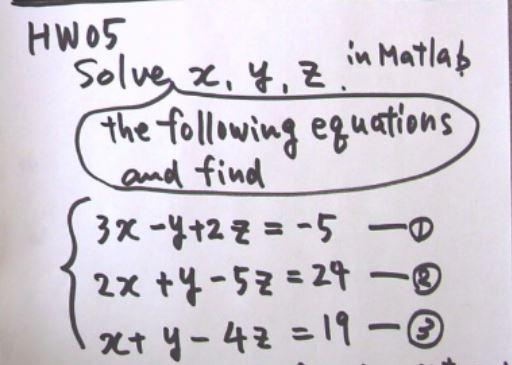 HW05
Solve x, y, z. in Matlab
the following equations
and find
3x-y+2z = -5 —①
2x +y-5z = 24 —②
x+ y-4z = 19 —③